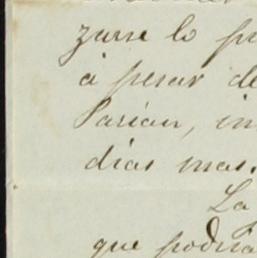 zarse lo pr
á pesar de
Parian, in
dias mas.
La
que podria